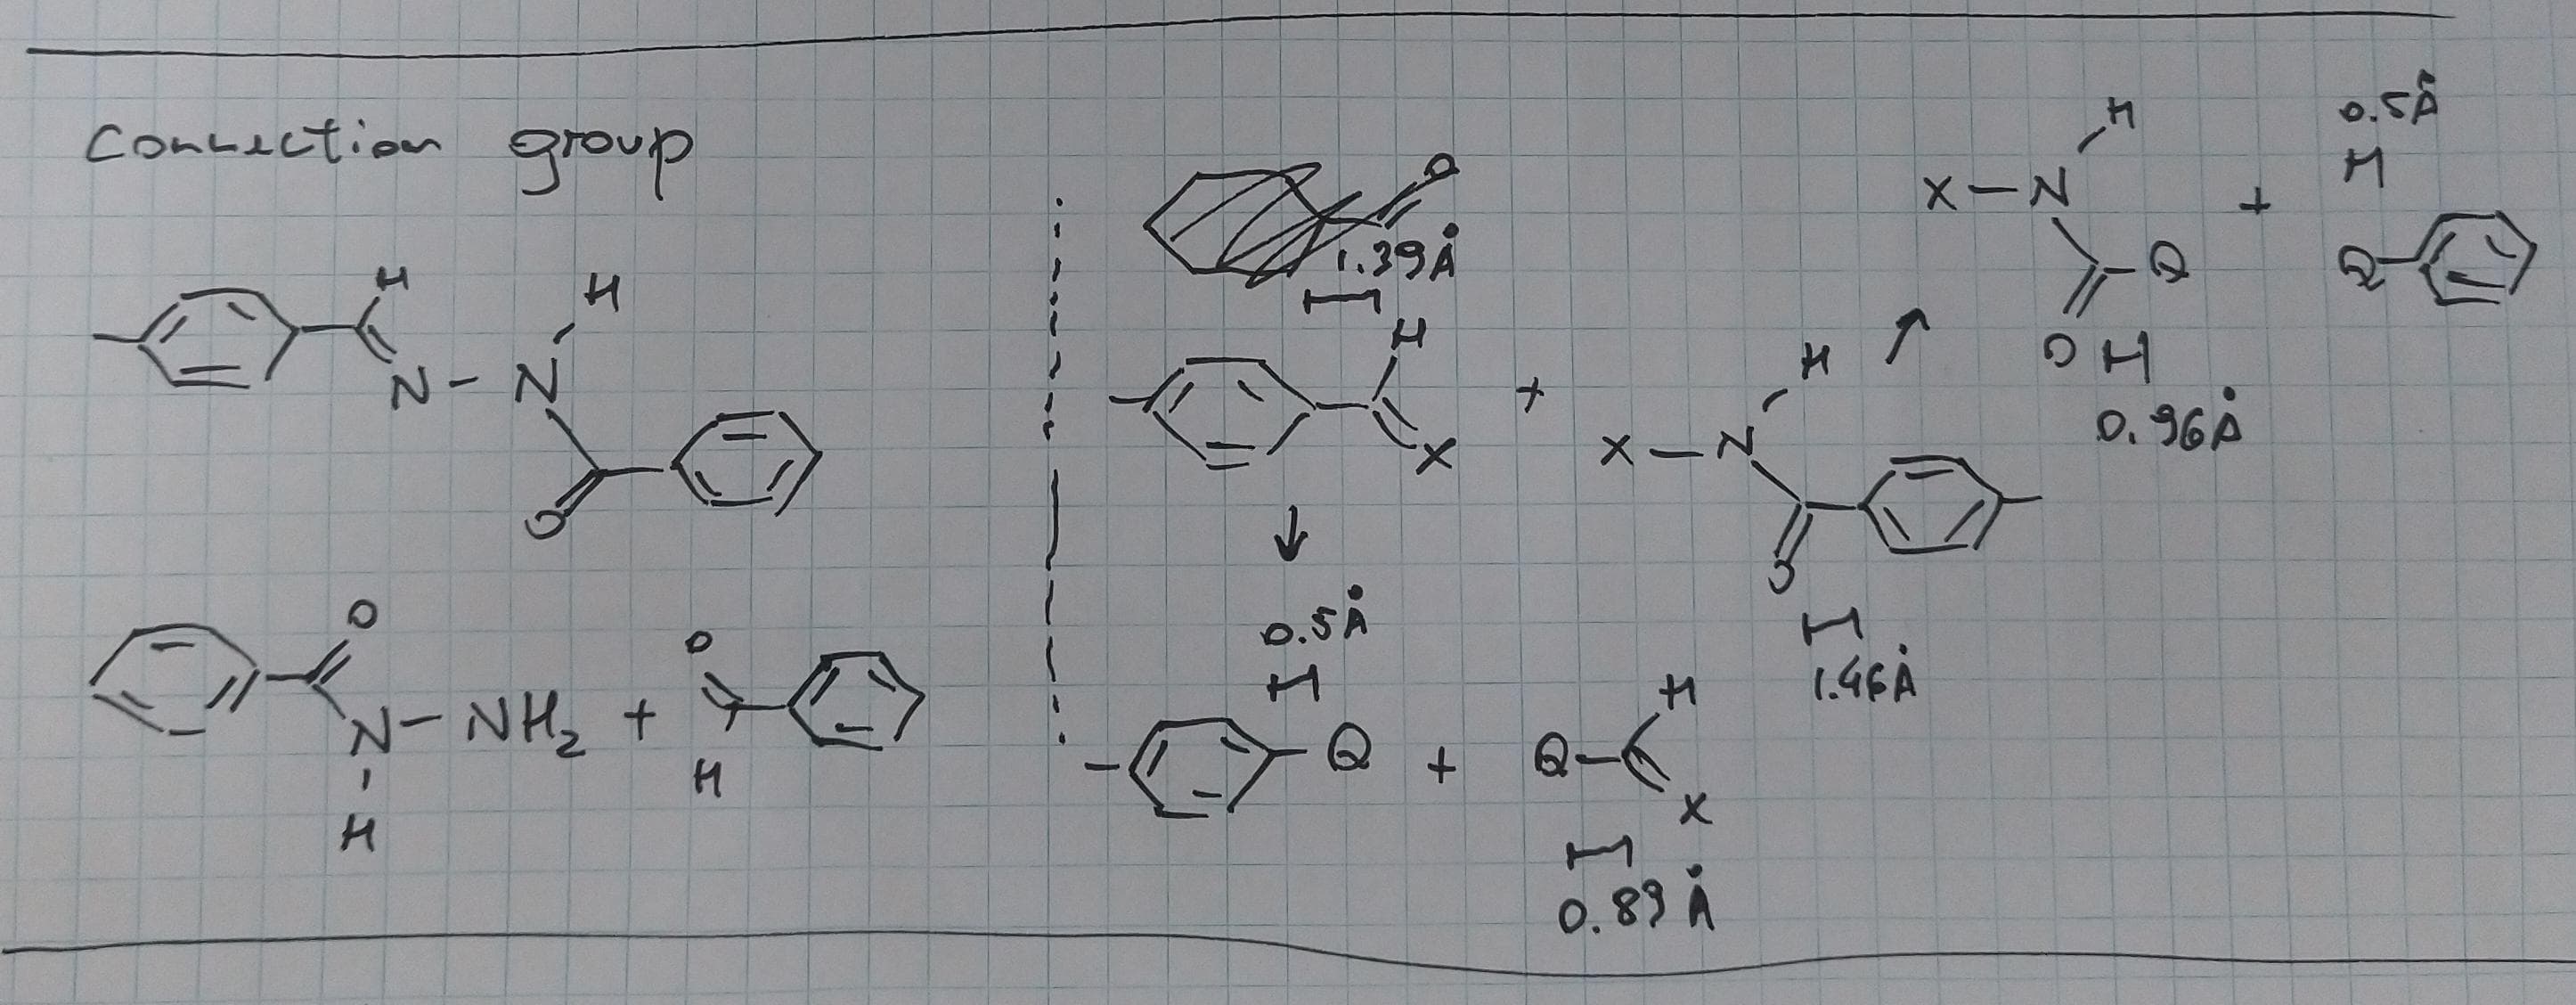 Connection group
H
H
N - N
O
O
N - NH2 + O
H
H
O
1.39Å
H
X
+
X - N
H
O
1.46Å
0.5Å
Q + Q
H
X
0.89Å
X - N
H
Q
O
0.96Å
+
0.5Å
Q